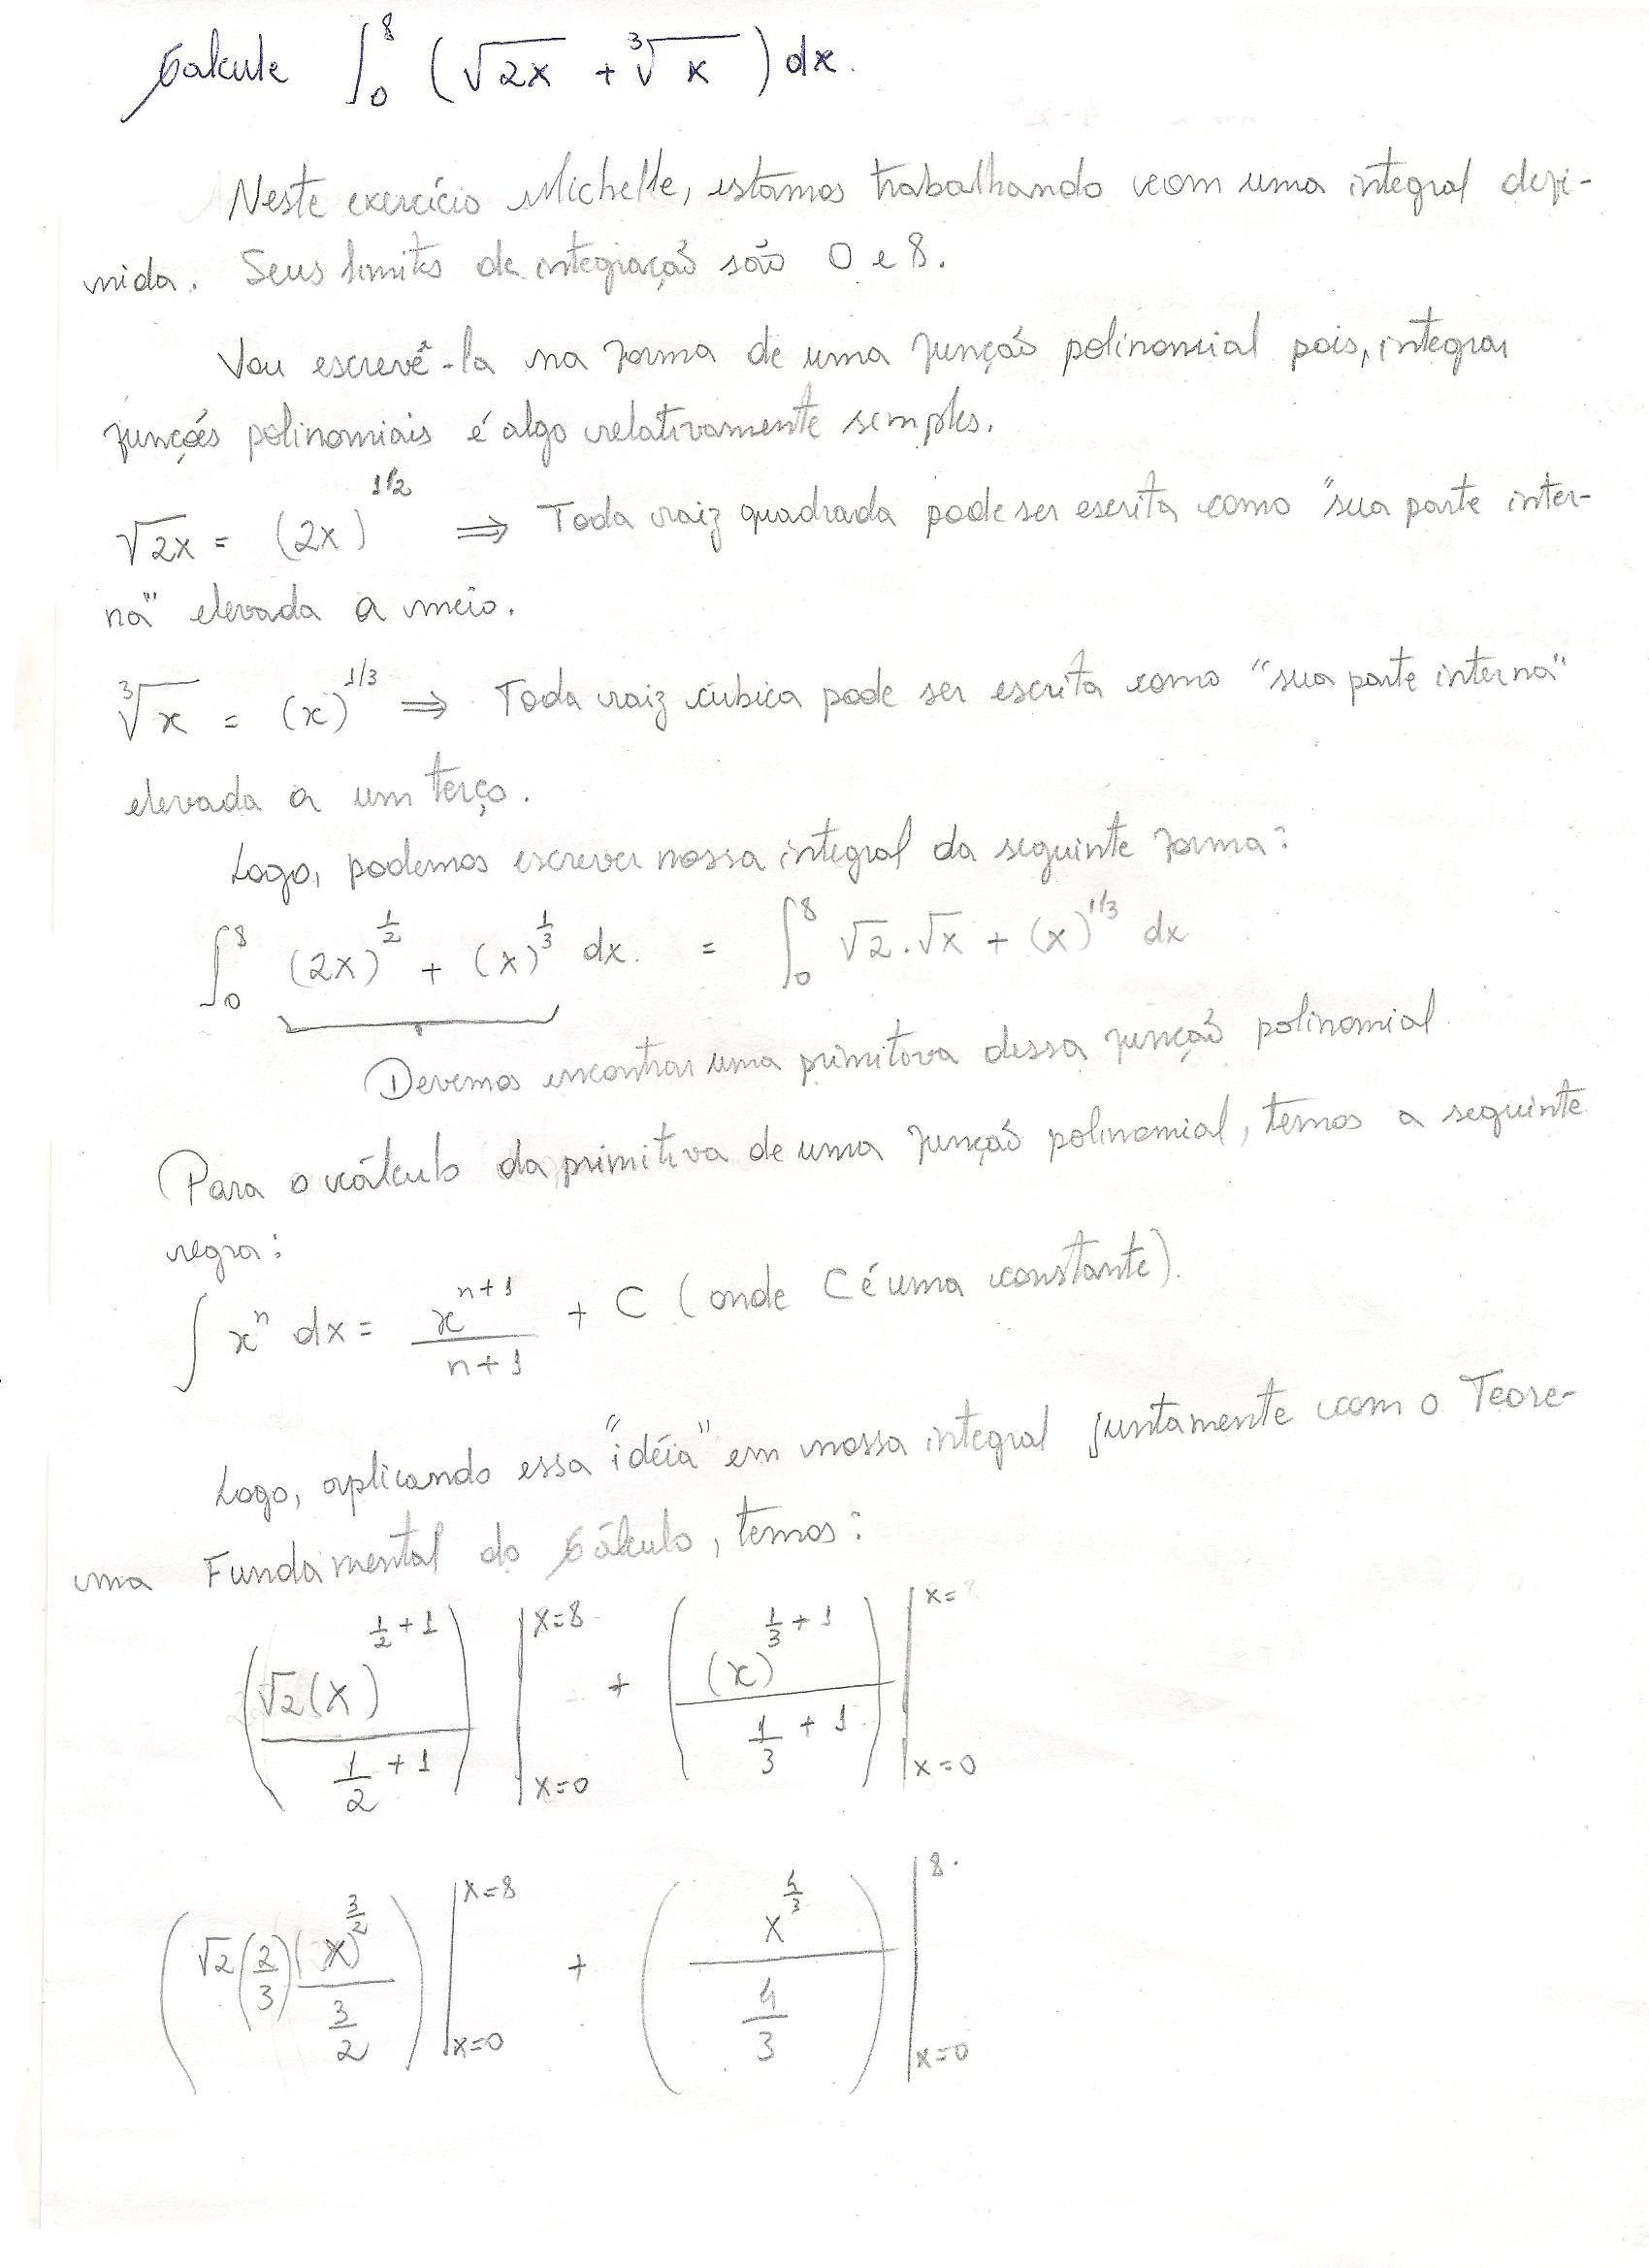 Calcule ∫₀⁸ (√2x + ∛x) dx.
Neste exercício Michelle, estamos trabalhando com uma integral defi-
nida. Seus limites de integração são 0 e 8.
Vou escrevê-la na forma de uma função polinomial pois, integrar
funções polinomiais é algo relativamente simples.
√2x = (2x)^1/2 ⇒ Toda raiz quadrada pode ser escrita como "sua parte inter-
na" elevada a meio.
∛x = (x)^1/3 ⇒ Toda raiz cúbica pode ser escrita como "sua parte interna"
elevada a um terço.
Logo, podemos escrever nossa integral da seguinte forma:
∫₀⁸ (2x)^1/2 + (x)^1/3 dx. = ∫₀⁸ √2 . √x + (x)^1/3 dx
Devemos encontrar uma primitiva dessa função polinomial
Para o cálculo da primitiva de uma função polinomial, temos a seguinte
regra:
∫ x^n dx = x^(n+1) / (n+1) + C (onde C é uma constante).
Logo, aplicando essa "idéia" em nossa integral juntamente com o Teore-
ma Fundamental do Cálculo, temos:
(√2(x)^(1/2 + 1) / (1/2 + 1)) |x=8 x=0 + ((x)^(1/3 + 1) / (1/3 + 1)) |x= x=0
(√2 (2/3) (x)^3/2 / (3/2)) |x=8 x=0 + (x^4/3 / (4/3)) |8. x=0